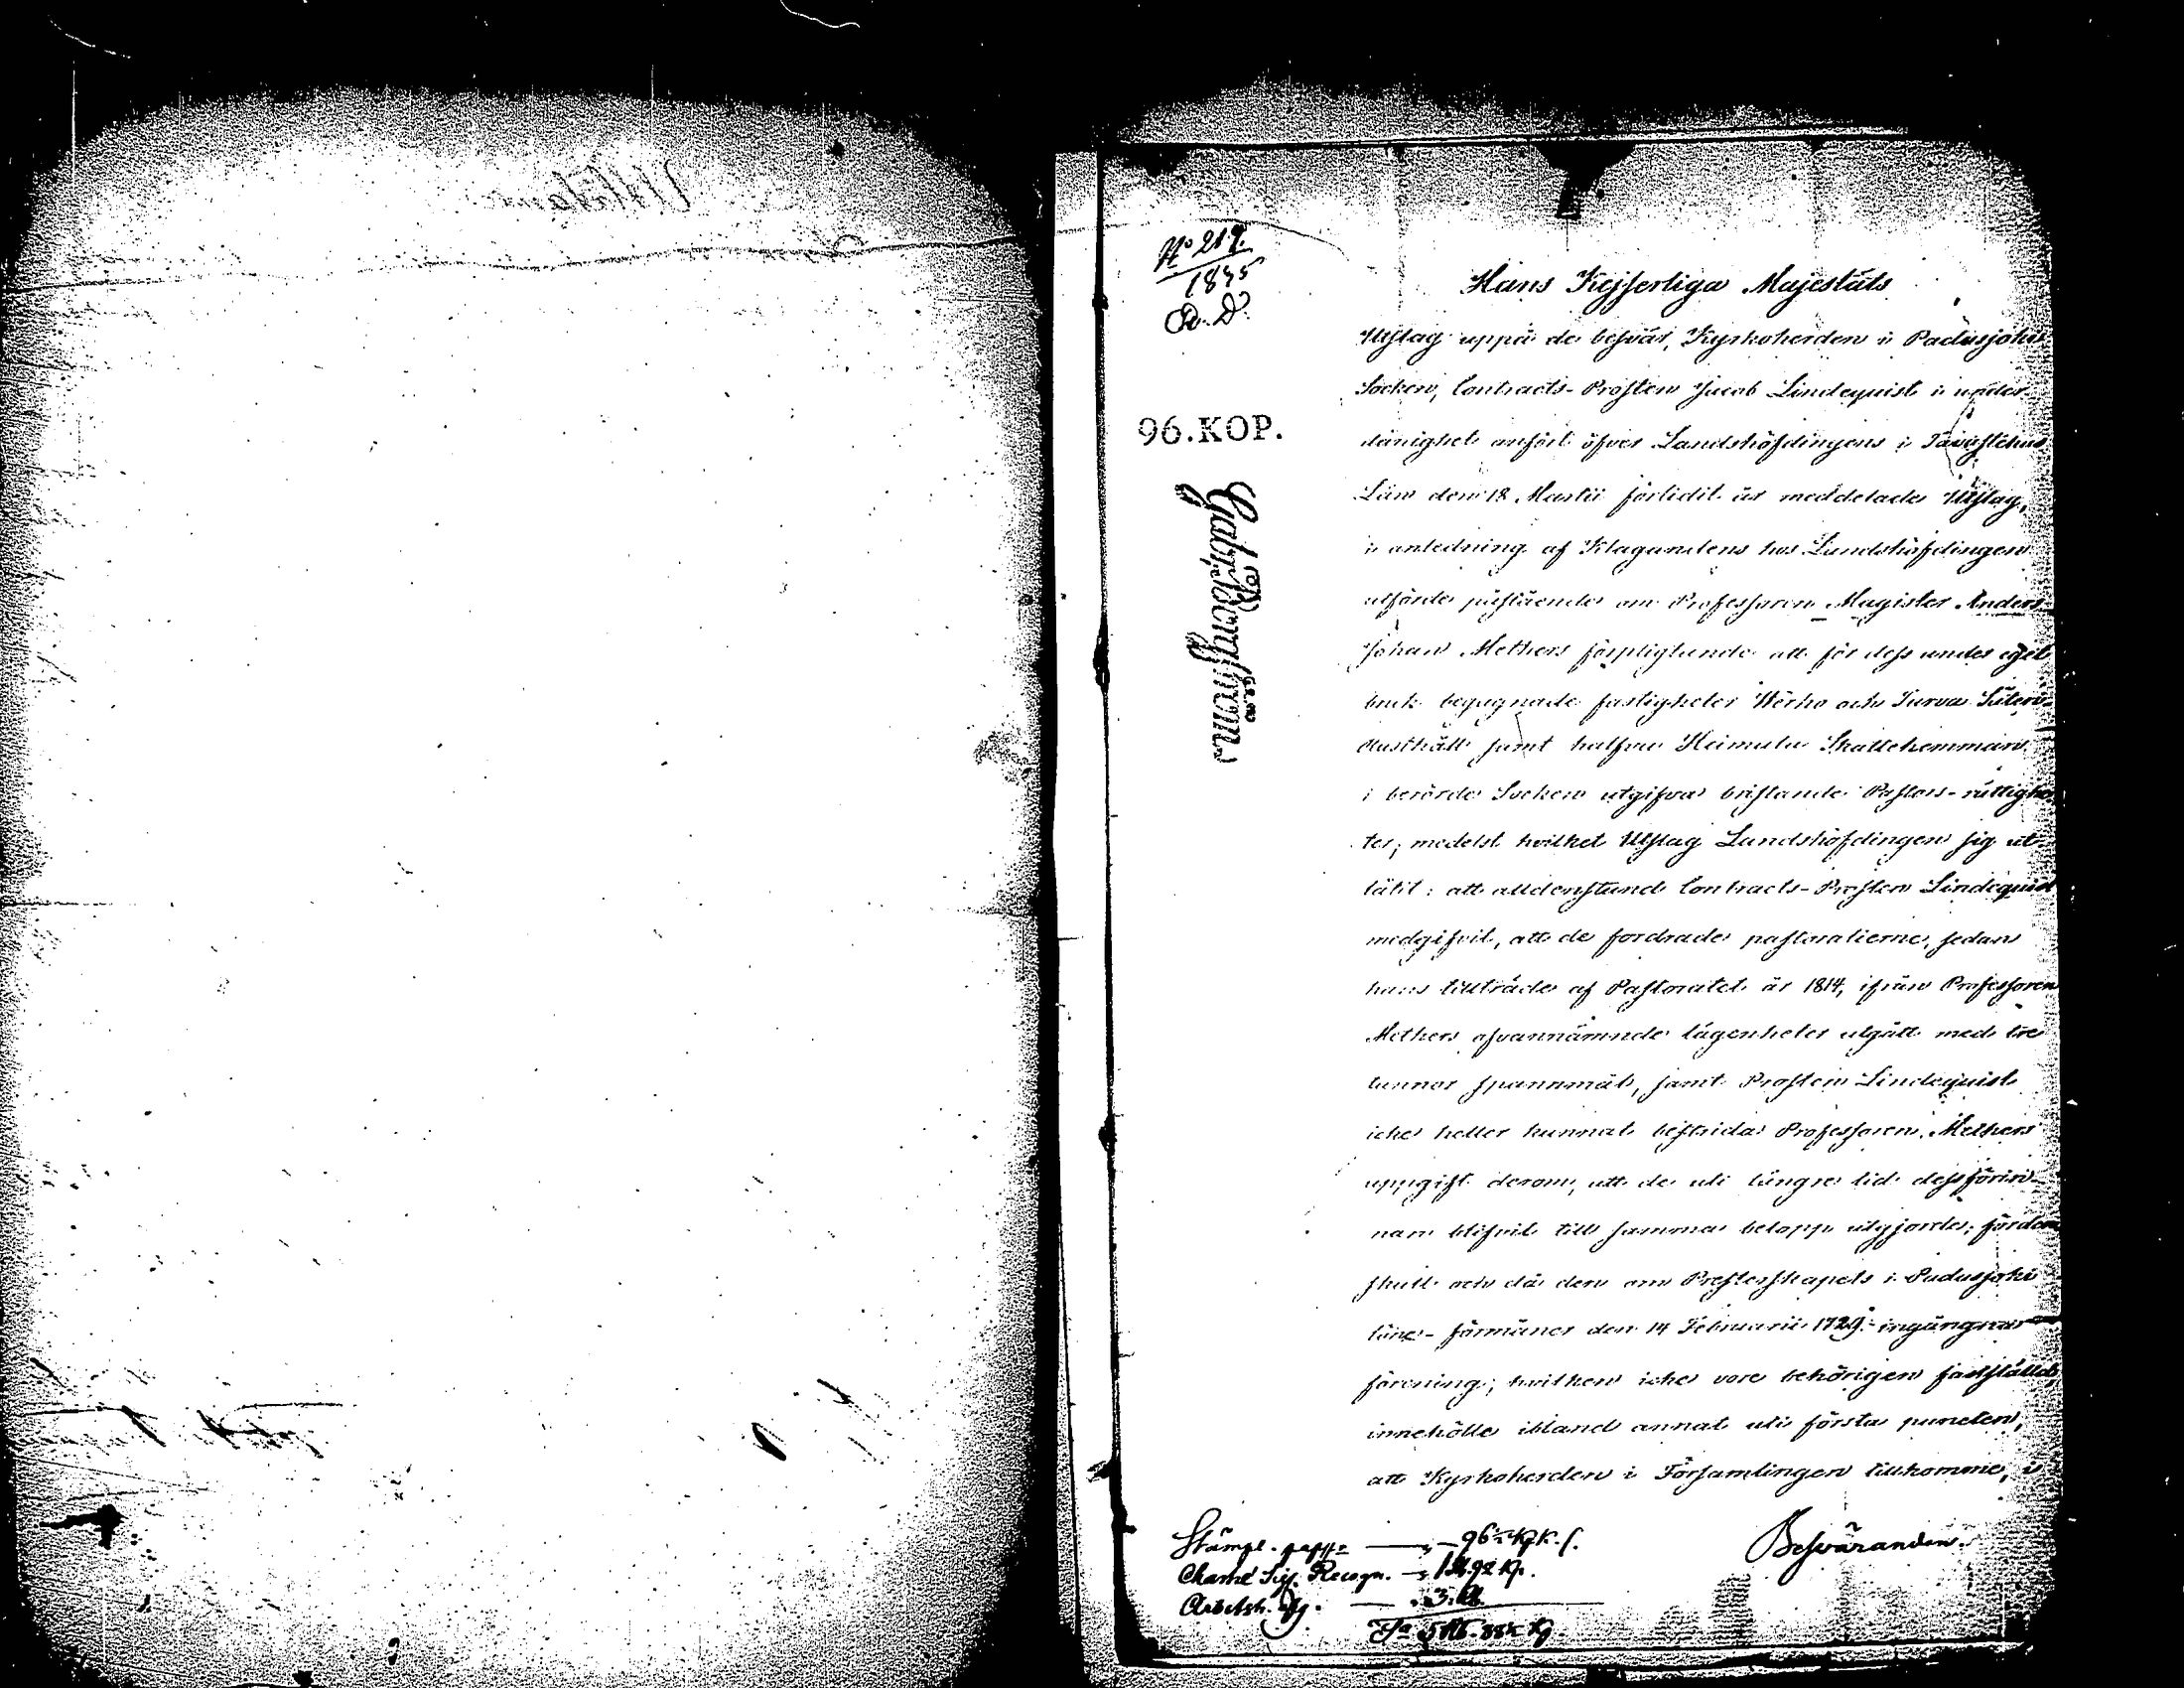 No 217.
1835
R. D.
96.KOP.
Hans Kejserliga Majestäts
Utslag uppå de besvär, Kyrkoherden i Padasjoki
Socken, Contracts-Prosten Jacob Lindequist i under-
dånighet anfört öfver Landshöfdingens i Tavastehus
Län den 18 Martii förlidit år meddelade Utslag,
i anledning af Klagandens hos Landshöfdingen
utförde påstående om Professoren Magister Anders
Johan Methers förpligtande att för dess under eget
bruk begagnade fastigheter Werho och Turva Säteri-
rusthåll samt halfva Heimala Skattehemman
i berörde Socken utgifva bristande Pastors-rättighe-
ter; medelst hvilket Utslag Landshöfdingen sig ut-
låtit: att alldenstund Contracts-Prosten Lindequist
medgifvit, att de fordrade pastoralierne, sedan
hans tillträde af Pastoratet år 1814, ifrån Professoren
Methers ofvannämnde lägenheter utgått med tre
tunnor spannmål, samt Prosten Lindequist
icke heller kunnat bestrida Professoren Methers
uppgift derom, att de uti längre tid dessförin-
nan blifvit till samma belopp utgjorde; fördens-
skull och då den om Presterskapets i Padasjoki
löne-förmåner den 14 Februarii 1729 ingångna
förening, hvilken icke vore behörigen fastställd,
innehölle ibland annat uti första puncten,
att Kyrkoherden i Församlingen tillkomme, i
Besväranden.
Stämpl. papp. — 96 Kop. S.
Charte Sig. Recogn.